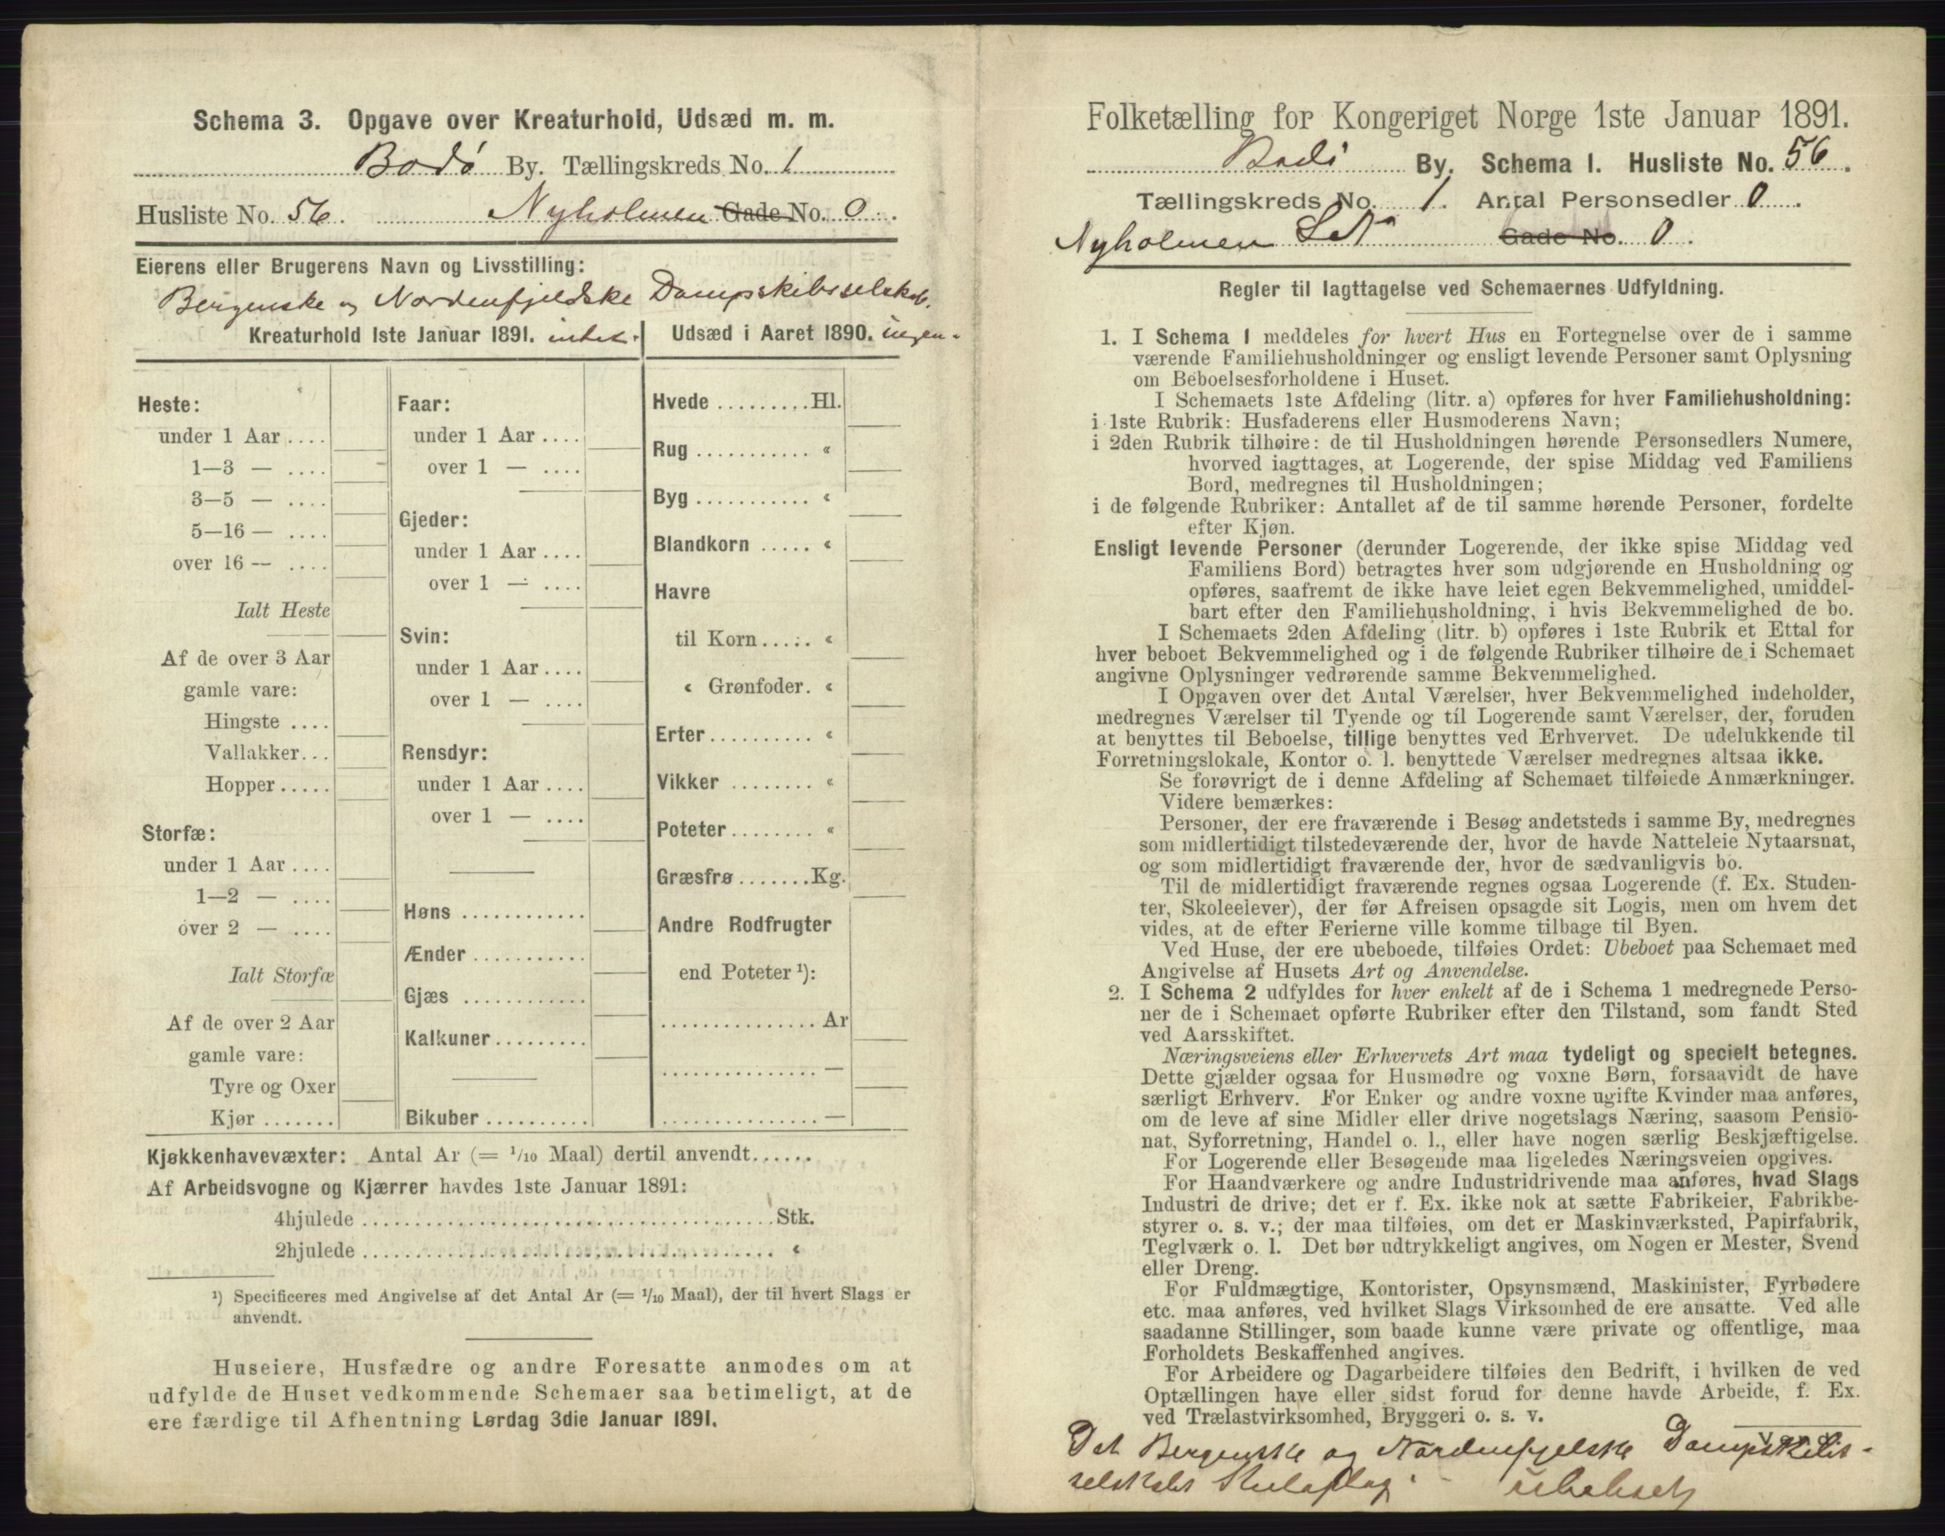 Schema 3. Opgave over Kreaturhold, Udsæd m. m.
Bodø By. Tællingskreds No. 1
Husliste No. 56. Nyholmen Gade No. 0.
Eierens eller Brugerens Navn og Livsstilling:
Bergenske og Nordenfjeldske Dampskibsselskab.
Kreaturhold 1ste Januar 1891. intet. Udsæd i Aaret 1890. ingen.
Heste:
under 1 Aar ....
1—3 — ....
3—5 — ....
5—16 — ....
over 16 — ....
Ialt Heste
Af de over 3 Aar
gamle vare:
Hingste ....
Vallakker...
Hopper.....
Storfæ:
under 1 Aar ....
1—2 — ....
over 2 — ....
Ialt Storfæ
Af de over 2 Aar
gamle vare:
Tyre og Oxer
Kjør .......
Faar:
under 1 Aar ....
over 1 — ....
Gjeder:
under 1 Aar ....
over 1 — ....
Svin:
under 1 Aar ....
over 1 — ....
Rensdyr:
under 1 Aar ....
over 1 — ....
Høns ............
Ænder ...........
Gjæs ............
Kalkuner.........
Bikuber ..........
Hvede .........Hl.
Rug ........... „
Byg ........... „
Blandkorn ..... „
Havre
til Korn ..... „
„ Grønfoder. „
Erter.......... „
Vikker ........ „
Poteter........ „
Græsfrø .......Kg.
Andre Rodfrugter
end Poteter ¹):
............... Ar
............... —
............... —
Kjøkkenhavevæxter: Antal Ar (= 1/10 Maal) dertil anvendt......
Af Arbeidsvogne og Kjærrer havdes 1ste Januar 1891:
4hjulede ....................................... Stk.
2hjulede ....................................... „
¹) Specificeres med Angivelse af det Antal Ar (= 1/10 Maal), der til hvert Slags er
anvendt.
Huseiere, Husfædre og andre Foresatte anmodes om at
udfylde de Huset vedkommende Schemaer saa betimeligt, at de
ere færdige til Afhentning Lørdag 3die Januar 1891.
Folketælling for Kongeriget Norge 1ste Januar 1891.
Bodø By. Schema I. Husliste No. 56.
Tællingskreds No. 1. Antal Personsedler 0.
Nyholmen Gade No. 0.
Regler til Iagttagelse ved Schemaernes Udfyldning.
1. I Schema 1 meddeles for hvert Hus en Fortegnelse over de i samme
værende Familiehusholdninger og ensligt levende Personer samt Oplysning
om Beboelsesforholdene i Huset.
I Schemaets 1ste Afdeling (litr. a) opføres for hver Familiehusholdning:
i 1ste Rubrik: Husfaderens eller Husmoderens Navn;
i 2den Rubrik tilhøire: de til Husholdningen hørende Personsedlers Numere,
hvorved iagttages, at Logerende, der spise Middag ved Familiens
Bord, medregnes til Husholdningen;
i de følgende Rubriker: Antallet af de til samme hørende Personer, fordelte
efter Kjøn.
Ensligt levende Personer (derunder Logerende, der ikke spise Middag ved
Familiens Bord) betragtes hver som udgjørende en Husholdning og
opføres, saafremt de ikke have leiet egen Bekvemmelighed, umiddel-
bart efter den Familiehusholdning, i hvis Bekvemmelighed de bo.
I Schemaets 2den Afdeling (litr. b) opføres i 1ste Rubrik et Ettal for
hver beboet Bekvemmelighed og i de følgende Rubriker tilhøire de i Schemaet
angivne Oplysninger vedrørende samme Bekvemmelighed.
I Opgaven over det Antal Værelser, hver Bekvemmelighed indeholder,
medregnes Værelser til Tyende og til Logerende samt Værelser, der, foruden
at benyttes til Beboelse, tillige benyttes ved Erhvervet. De udelukkende til
Forretningslokale, Kontor o. l. benyttede Værelser medregnes altsaa ikke.
Se forøvrigt de i denne Afdeling af Schemaet tilføiede Anmærkninger.
Videre bemærkes:
Personer, der ere fraværende i Besøg andetsteds i samme By, medregnes
som midlertidigt tilstedeværende der, hvor de havde Natteleie Nytaarsnat,
og som midlertidigt fraværende der, hvor de sædvanligvis bo.
Til de midlertidigt fraværende regnes ogsaa Logerende (f. Ex. Studen-
ter, Skoleelever), der før Afreisen opsagde sit Logis, men om hvem det
vides, at de efter Ferierne ville komme tilbage til Byen.
Ved Huse, der ere ubeboede, tilføies Ordet: Ubeboet paa Schemaet med
Angivelse af Husets Art og Anvendelse.
2. I Schema 2 udfyldes for hver enkelt af de i Schema 1 medregnede Perso-
ner de i Schemaet opførte Rubriker efter den Tilstand, som fandt Sted
ved Aarsskiftet.
Næringsveiens eller Erhvervets Art maa tydeligt og specielt betegnes.
Dette gjælder ogsaa for Husmødre og voxne Børn, forsaavidt de have
særligt Erhverv. For Enker og andre voxne ugifte Kvinder maa anføres,
om de leve af sine Midler eller drive nogetslags Næring, saasom Pensio-
nat, Syforretning, Handel o. l., eller have nogen særlig Beskjæftigelse.
For Logerende eller Besøgende maa ligeledes Næringsveien opgives.
For Haandværkere og andre Industridrivende maa anføres, hvad Slags
Industri de drive; det er f. Ex. ikke nok at sætte Fabrikeier, Fabrikbe-
styrer o. s. v.; der maa tilføies, om det er Maskinværksted, Papirfabrik,
Teglværk o. l. Det bør udtrykkeligt angives, om Nogen er Mester, Svend
eller Dreng.
For Fuldmægtige, Kontorister, Opsynsmænd, Maskinister, Fyrbødere
etc. maa anføres, ved hvilket Slags Virksomhed de ere ansatte. Ved alle
saadanne Stillinger, som baade kunne være private og offentlige, maa
Forholdets Beskaffenhed angives.
For Arbeidere og Dagarbeidere tilføies den Bedrift, i hvilken de ved
Optællingen have eller sidst forud for denne havde Arbeide, f. Ex.
ved Trælastvirksomhed, Bryggeri o. s. v.
Det Bergenske og Nordenfjelske Dampskibs-
selskabs ubeboet